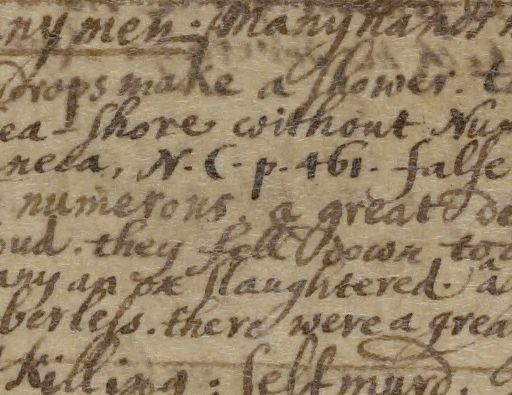 ny men. Many hands
Drops make a shower.
ea-shore without Nu
neca, N. C. p. 461. false
numerous. a great de
oud. they fell down to
any an ox slaughtered. a
berless. there were a grea
Killing: self murd.